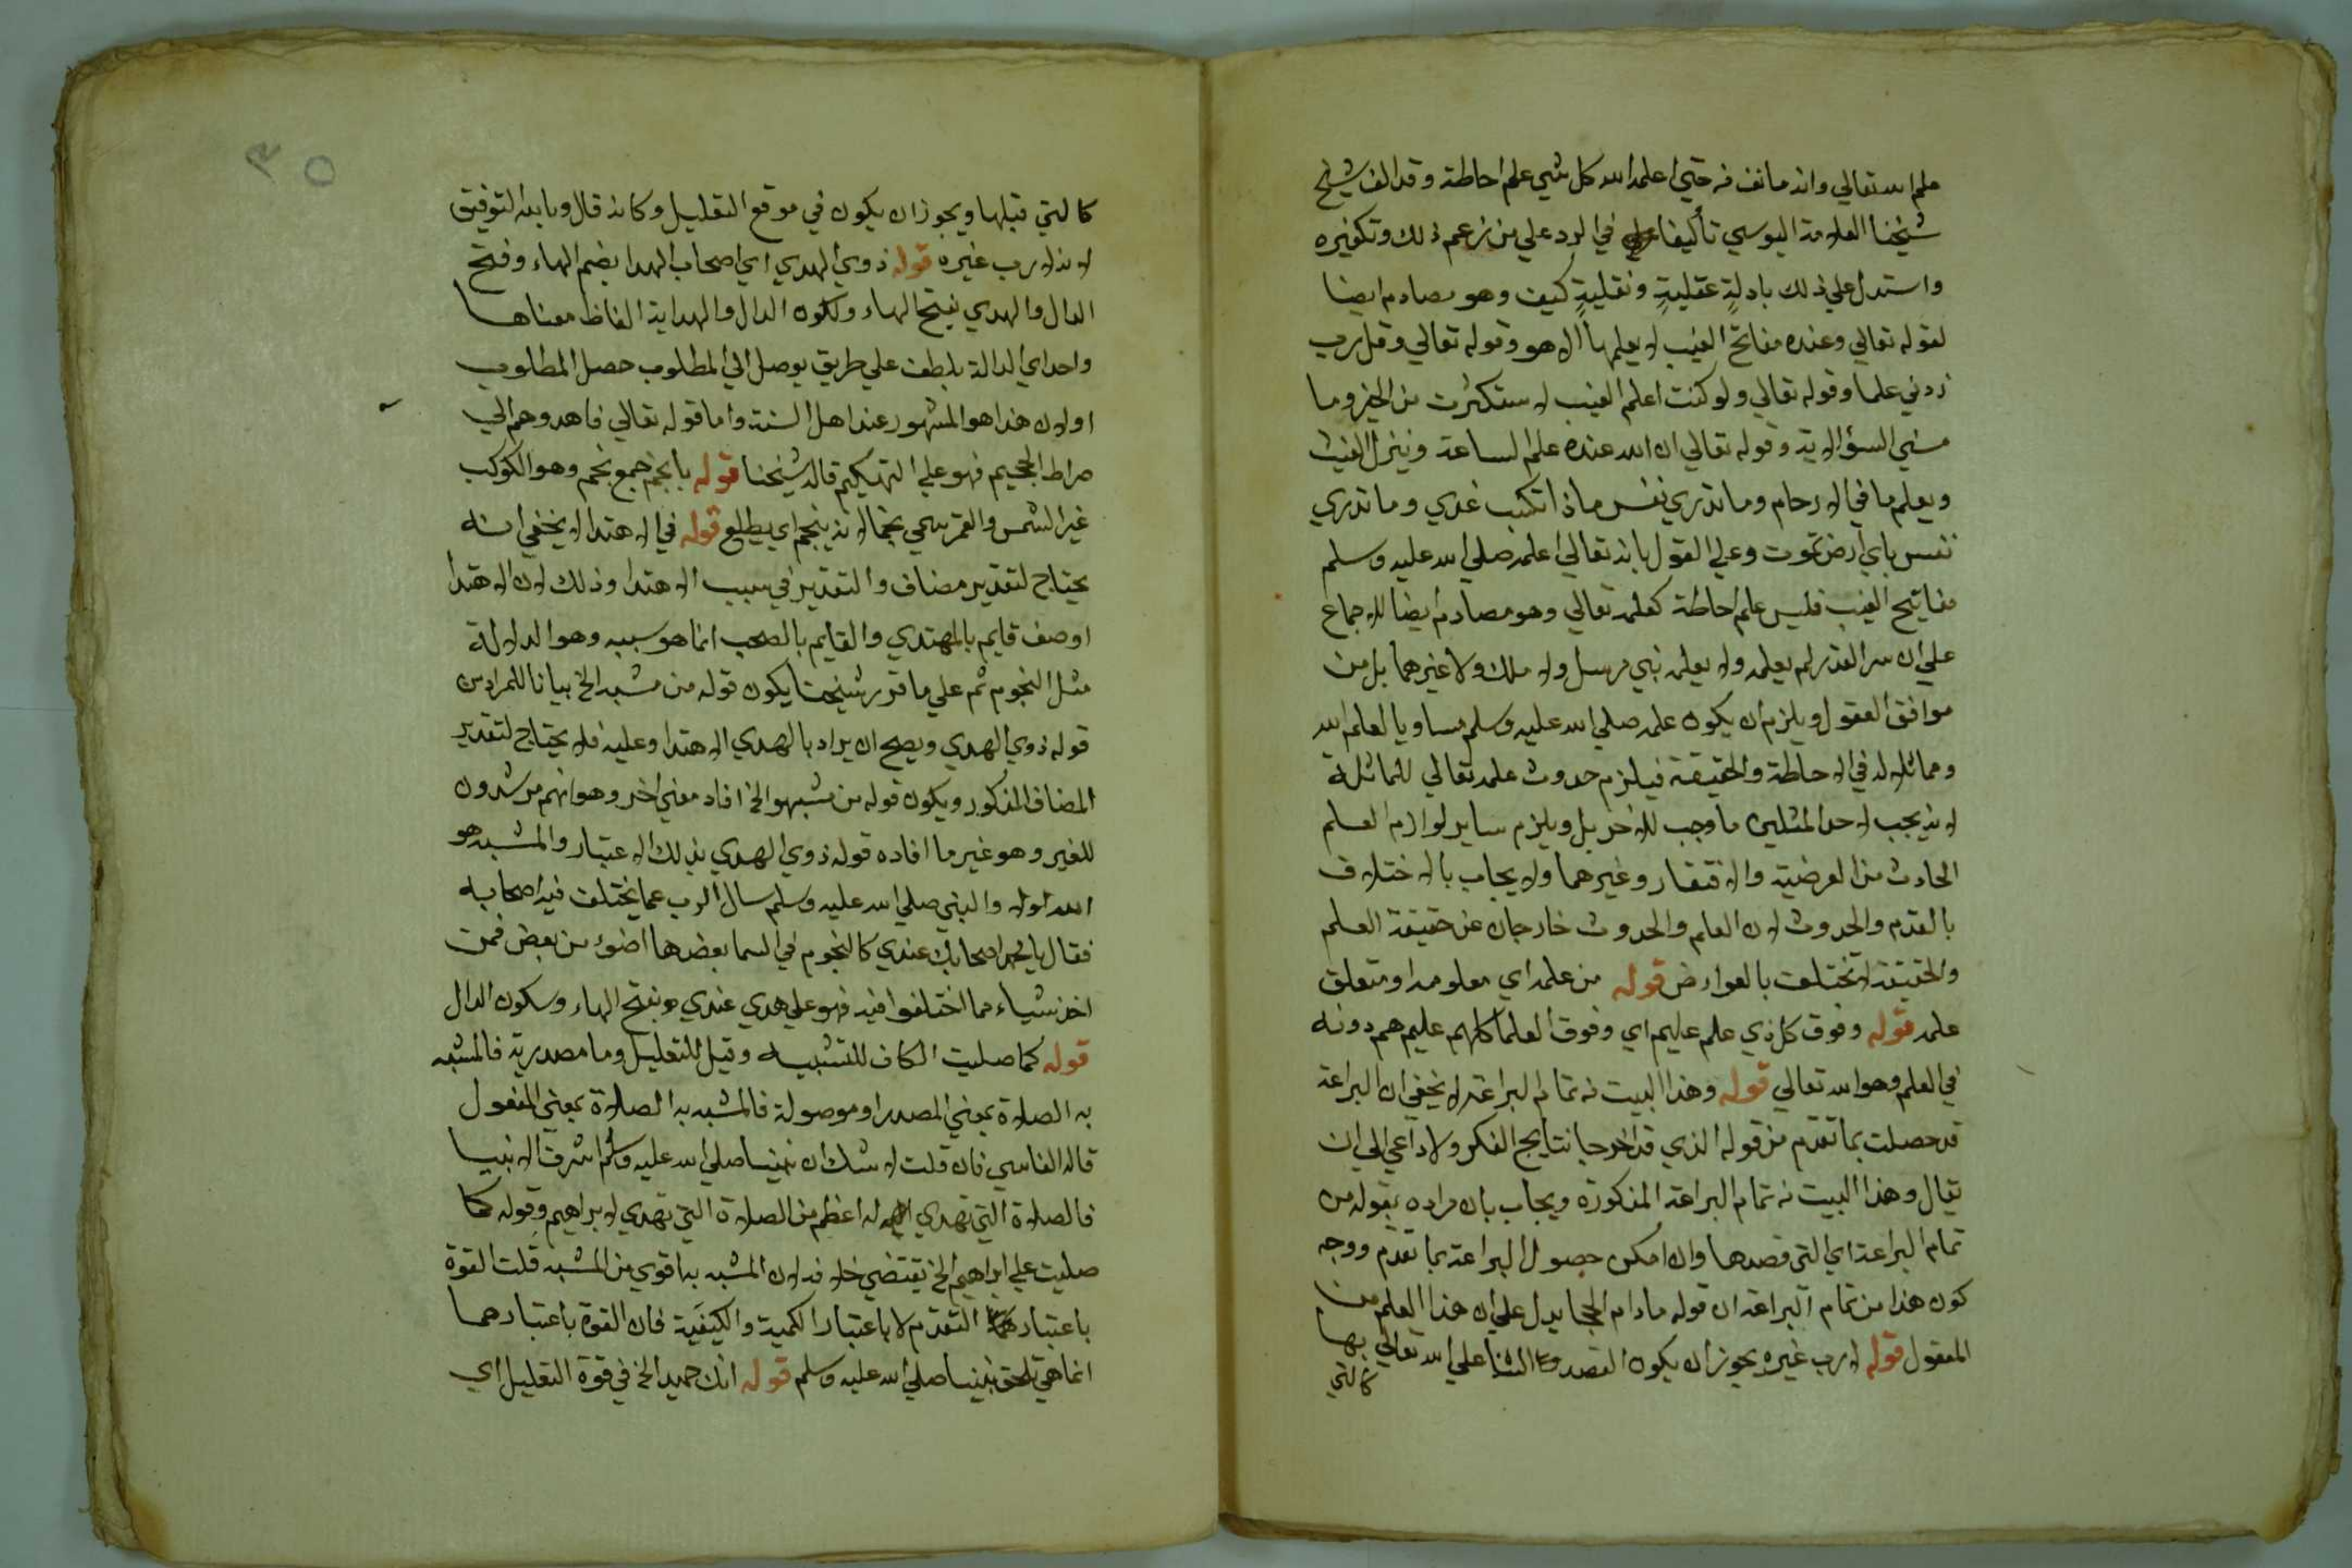 علم الله تعالي وانه مانف فه حتي اعلمه الله كل شي علم احاطة وقد الف شيخ
شيخنا العلامة اليوسي تأليفا في الرد علي من زعم ذلك وتكفيره
واستدل علي ذلك بادلةٍ عقليةٍ ونقليةٍ كيف وهو مصادم ايضا
لقوله تعالي وعنده مفاتح الغيب لا يعلمها الا هو وقوله تعالي وقل رب
زدني علما وقوله تعالي ولو كنت اعلم الغيب لاستكثرت من الخير وما
مسني السؤ الاية وقوله تعالي ان الله عنده علم الساعة وينزل الغيث
ويعلم ما في الارحام وما تدري نفس ماذا تكسب غدي وما تدري
نفس باي ارض تموت وعلي القول بانه تعالي اعلمه صلي الله عليه وسلم
مفاتيح الغيب فليس علم احاطة كعلمه تعالي وهو مصادم ايضا للاجماع
علي ان سر القدر لم يعلمه ولا يعلمه نبي مرسل ولا ملك ولا غيرهما بل من
موافق العقول ويلزم ان يكون علمه صلي الله عليه وسلم مساويا لعلم الله
ومماثلا له في الاحاطة والحقيقة فيلزم حدوث علمه تعالي للماثلة
لانه يجب لاحد المثلين ما وجب للاخر بل ويلزم ساير لوازم العلم
الحادث من العرضية والافتقار وغيرهما ولا يجاب بالاختلاف
بالقدم والحدوث لان العلم والحدوث خارجان عن حقيقة العلم
والحقيقة لا تختلف بالعوارض قوله من علمه اي معلومه او متعلق
علمه قوله وفوق كل ذي علم عليم اي وفوق العلما كلهم عليم هم دونه
في العلم وهو الله تعالي قوله وهذا البيت نه تمام البراعة لا يخفي ان البراعة
قد حصلت بما تقدم من قوله الذي قد اخرجا نتايج الفكر ولا داعي الي ان
يقال وهذا البيت نه تمام البراعة المذكورة ويجاب بان مراده بقوله من
تمام البراعة اي التي قصدها وان امكن حصول البراعة بما تقدم ووجه
كون هذا من تمام البراعة ان قوله مادام الحجا يدل علي ان هذا العلم من
المعقول قوله لا رب غيره يجوز ان يكون القصد الثنا علي الله تعالي بها
كالتي
٣٥
كالتي قبلها ويجوز ان يكون في موقع التعليل وكانه قال وبالله التوفيق
لانه لا رب غيره قوله ذوي الهدي اي اصحاب الهدا بضم الهاء وفتح
الدال والهدي بفتح الهاء وسكون الدال والهداية الفاظ معناها
واحد اي الدالة بلطف علي طريق يوصل الي المطلوب حصل المطلوب
اولان هذا هو المشهور عند اهل السنة واما قوله تعالي فاهدوهم الي
صراط الجحيم فهو علي التهكيم قاله شيخنا قوله بانجم جمع نجم وهو الكوكب
غير الشمس والقمر سمي نجما لانه ينجم اي يطلع قوله في الاهتدا لا يخفي انه
يحتاج لتقدير مضاف والتقدير في سبب الاهتدا وذلك لان الاهتدا
اوصف قايم بالمهتدي والقايم بالصحب انما هو سببه وهو الدلالة
مثل النجوم ثم علي ما قرر شيخنا يكون قوله من مشبه الخ بيانا للمراد من
قوله ذوي الهدي ويصح ان يراد بالهدي الاهتدا وعليه فلا يحتاج لتقدير
المضاف المذكور ويكون قوله من مشبهوا الخ افاد معني اخر وهو انهم مرشدون
للغير وهو غير ما افاده قوله ذوي الهدي بذلك الاعتبار والمشبه هو
الله اولا والنبي صلي الله عليه وسلم سال الرب عما يختلف فيه اصحابه
فقال يا محمد اصحابك عندي كالنجوم في السما بعضها اضوء من بعض فمن
اخذ بشياء مما اختلفوا فيه فهو علي هدي عندي وبفتح الهاء وسكون الدال
قوله كما صليت الكاف للتشبيه وقيل للتعليل وما مصدرية فالمشبه
به الصلاة بمعني المصدر او موصولة فالمشبه به الصلاة بمعني المفعول
قاله الفاسي فان قلت لا شك ان نبينا صلي الله عليه وسلم اشرف الانبيا
فالصلاة التي تهدي له اعظم من الصلاة التي تهدي لابراهيم وقوله كما
صليت علي ابراهيم الخ يقتضي خلافه لان المشبه به اقوي من المشبه قلت القوة
باعتبار التقدم لا باعتبار الكمية والكيفية فان القوة باعتبارهما
انما هي تلحق نبينا صلي الله عليه وسلم قوله انك حميد الخ في قوة التعليل اي